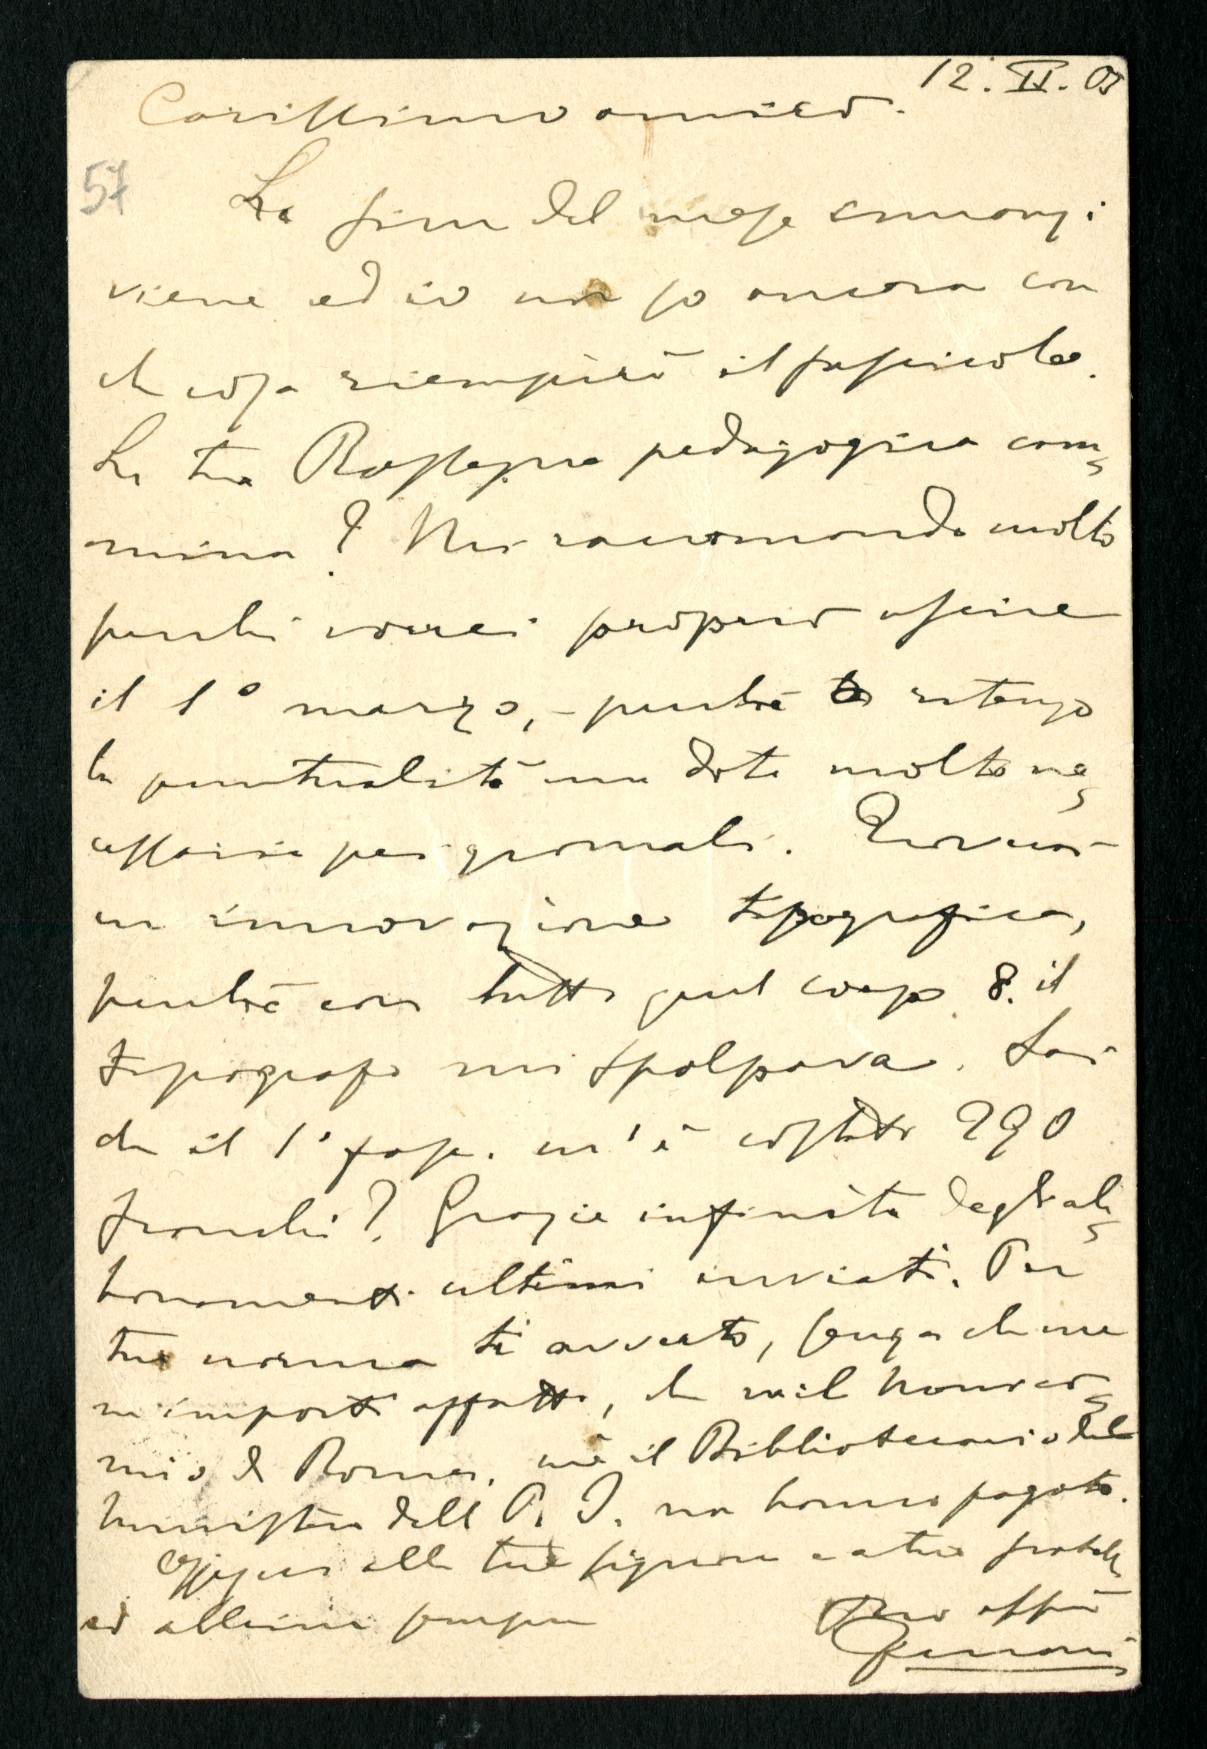 12. II. 05
Carissimo amico.
57
La fine del mese
viene ed io non so ancora con
che cosa riempirò il fascicolo.
La tua Rassegna pedagogica cam=
mina? Mi raccomando molto
perchè vorrei proprio uscire
il 1° marzo, - perchè ritengo
la puntualità una dote molto ne=
cessaria pei giornali. Troverai
un innovazione tipografica,
perchè con tutto quel corpo 8. il
tipografo mi spolpava. Sai
che il 1° fasc. m'è costato 290
franchi? Grazie infinite degli ab=
bonamenti ultimi inviati. Per
tua norma ti avverto, senza che me
n'importi affatto, che nè il
di Roma, nè il Bibliotecario del
ministero della P. I. non hanno pagato.
Ossequi alla tua signora e a tuo
ed abbimi sempre
Tuo aff.mo